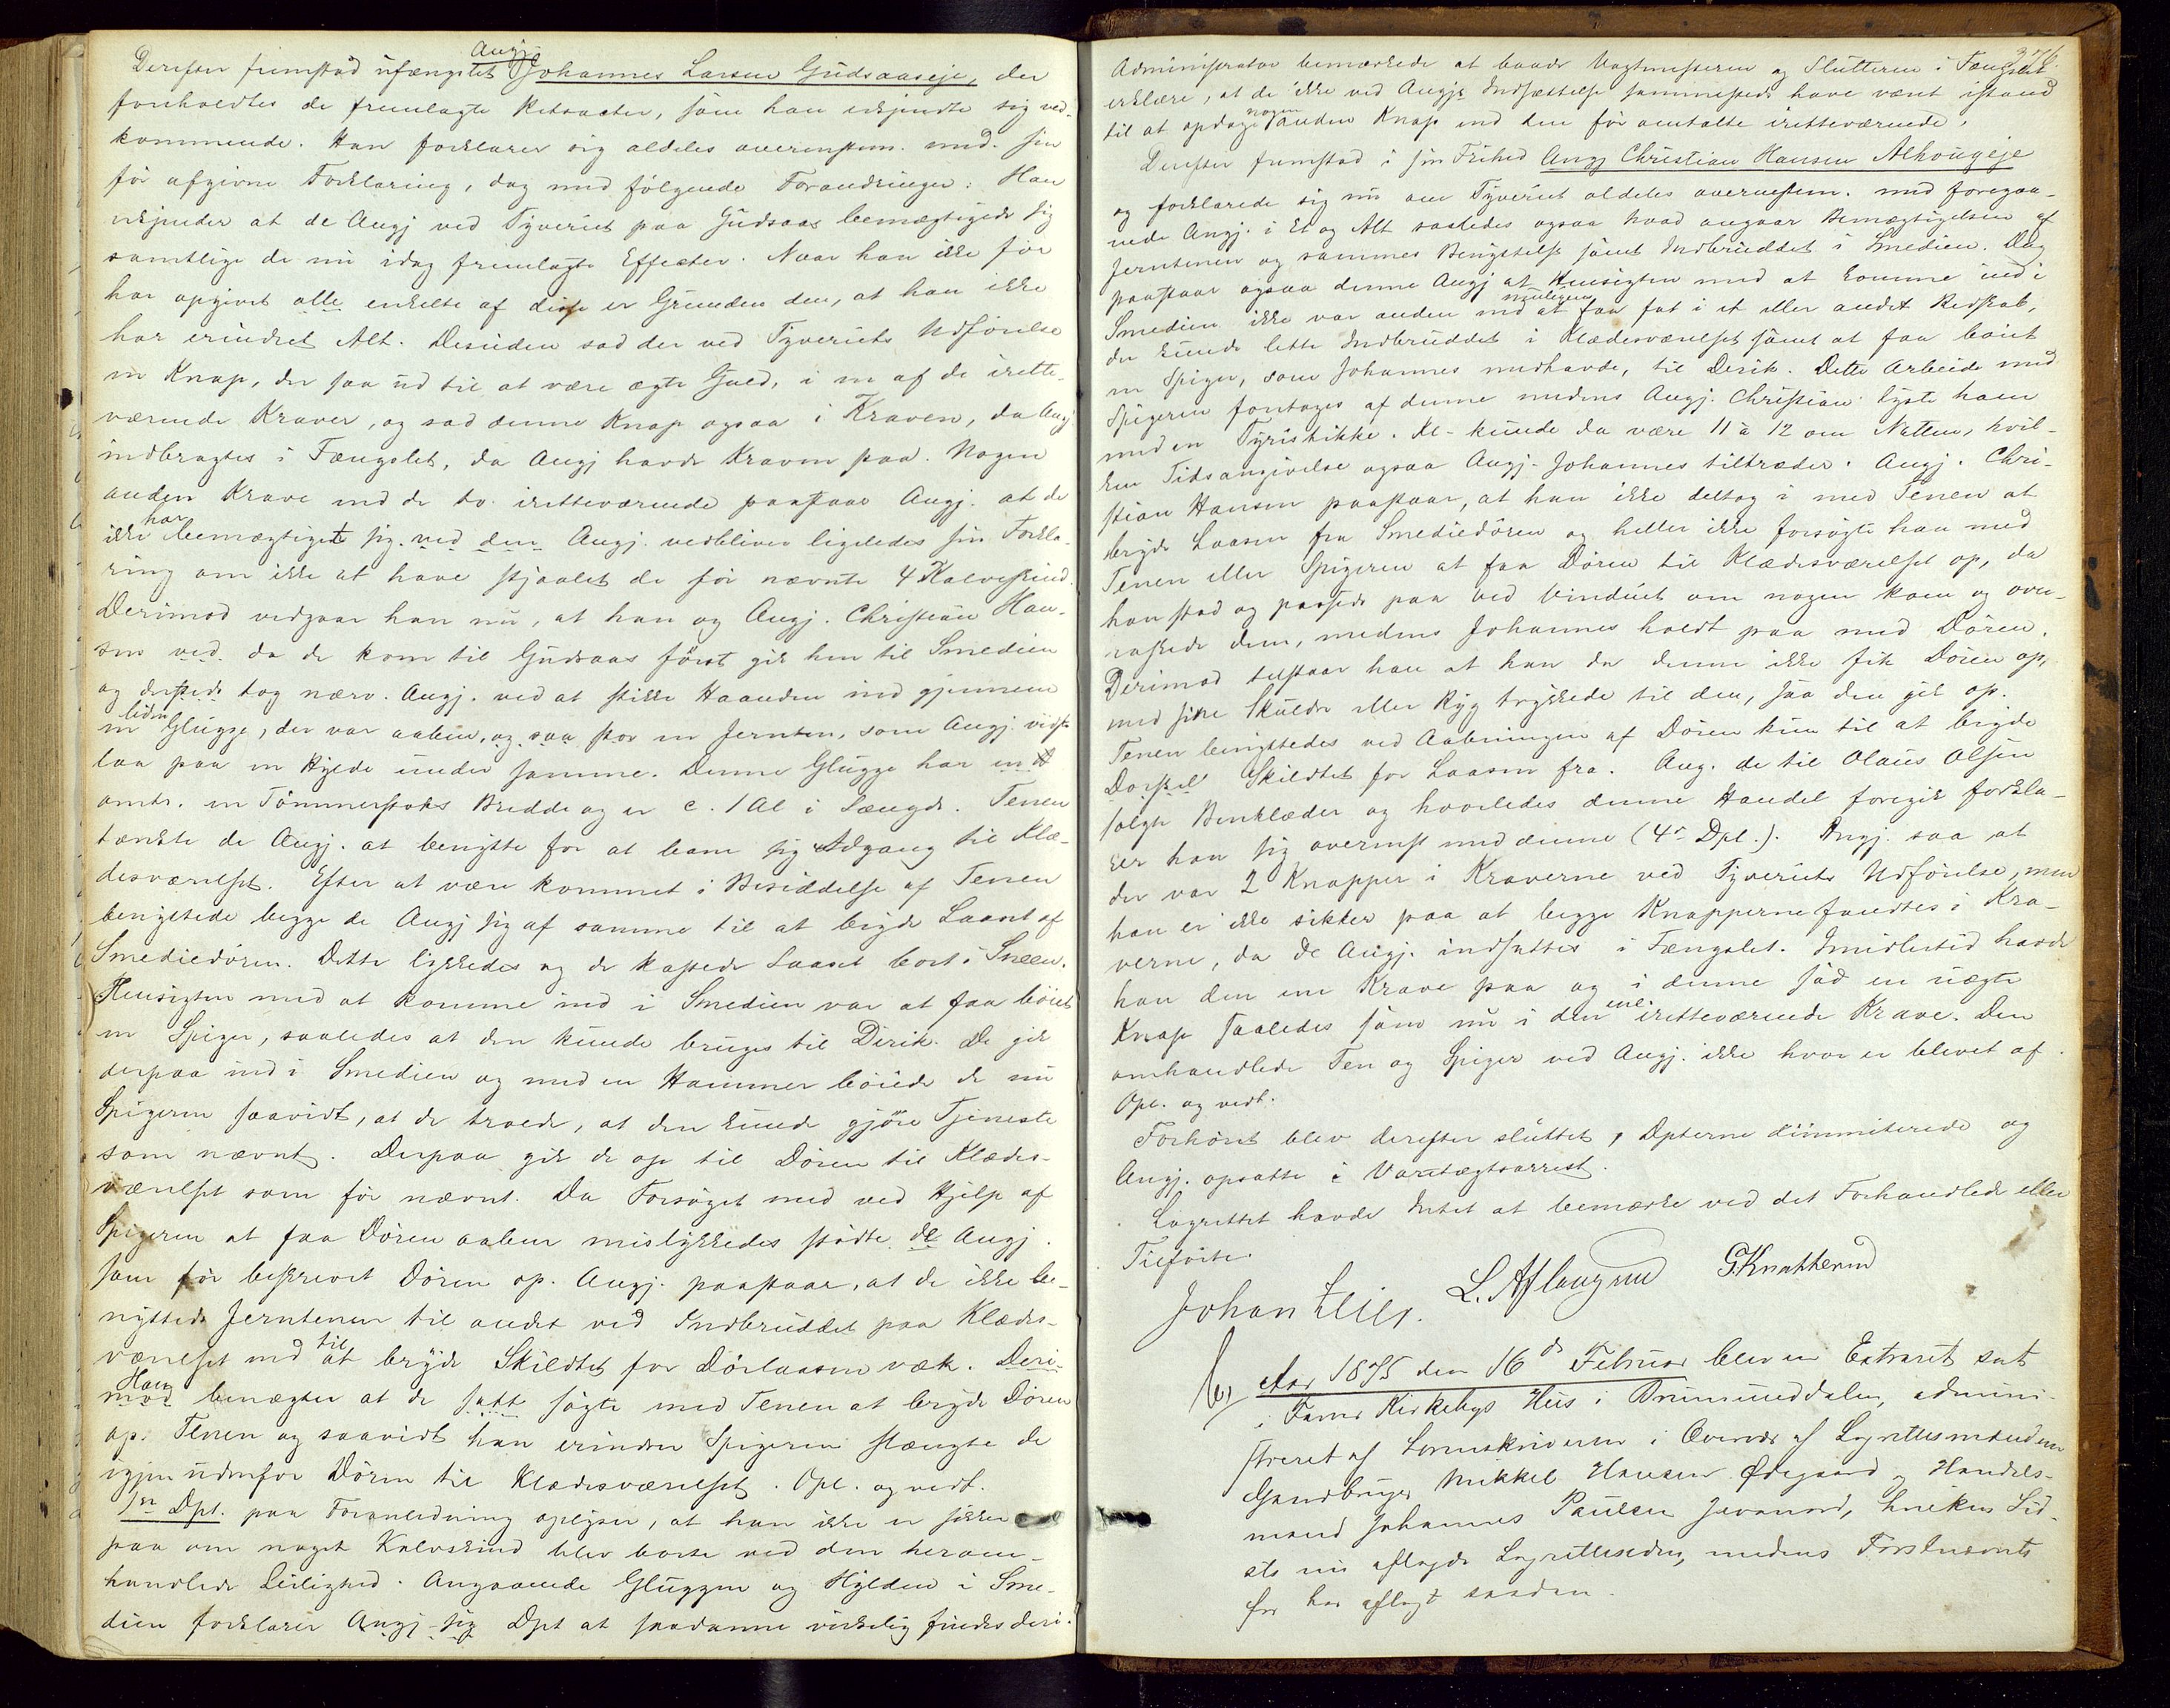 Angj
Derefter fremstod ufængslet Johannes Larsen Gudsaaseje, der
foreholdtes de fremlagte Retsacter, som han erkjendte sig ved-
kommende. Han forklarer sig aldeles overensstem. med. sin
før afgivne Forklaring, dog med følgende Forandringer: Han
erkjender at de Angj ved Tyveriet paa Gudsaas bemægtigede sig
samtlige de nu idag fremlagte Effecter. Naar han ikke før
har opgivet alle enkelte af disse er Grunden den, at han ikke
har erindret Alt. Desuden sad der ved Tyveriets Udførelse
en Knap, der saa ud til at være ægte Guld, i en af de irette-
værende Kraver, og sad denne Knap ogsaa i Kraven, da Angj
indbragtes i Fængslet, da Angj havde Kraven paa. Nogen
anden Krave end de to iretteværende paastaar Angj. at de
ikke har bemægtiget sig. ved den Angj. vedbliver ligeledes sin Forkla-
ring om ikke at have stjaalet de før nævnte 4 Kalveskind.
Derimod vedgaar han nu, at han og Angj. Christian Han-
sen ved da de kom til Gudsaas først gik hen til Smedien
og dersteds tog nærv. Angj. ved at stikke Haanden ind gjennem
en liden Glugge, der var aaben, og saa stor en Jernten, som Angj. vidste
laa paa en Hylde under samme. Denne Glugge har endt
omtr. en Tømmerstoks Bredde og er c. 1 Al i Længde. Tenen
tænkte de Angj. at benytte for at bane sig Adgang til Klæ-
desværelset. Efter at være kommet i Besiddelse af Tenen
benyttede begge de Angj sig af samme til at bryde Laaset af
Smediedøren. Dette lykkedes og de kastede Laaset bort i Sneen.
Hensigten med at komme ind i Smedien var at faa bøiet
en Spiger, saaledes at den kunde bruges til Dirik. De gik
derpaa ind i Smedien og med en Hammer bøiede de nu
Spigeren saavidt, at de troede, at den kunde gjøre Tjeneste
som nævnt. Derpaa gik de op til Døren til Klædes-
værelset som før nævnt. Da Forsøget med ved Hjelp af
Spigeren at faa Døren aaben mislykkedes stødte de Angj.
som før beskrevet Døren op. Angj. paastaar, at de ikke be-
nyttede Jerntenen til andet ved Indbruddet paa Klædes-
værelset end til at bryde Skildtet for Dørlaasen væk. Deri-
mod Han benægter at de satt søgte med Tenen at bryde Døren
op. Tenen og saavidt han erindrer Spigeren slængte de
igjen udenfor Døren til Klædesværelset. Opl. og vedt.
1ste Dpt. paa Foranledning oplyser, at han ikke er sikker
paa om noget Kalveskind blev borte ved den herom-
handlede Leilighed. Angaaende Gluggen og Hylden i Sme-
dien forklarer Angj sig Dpt at saadanne virkelig findes deri.
376.
Administrator bemærkede at baade Vagtmesteren og Slutteren i Fængslet
erklære, at de ikke ved Angjs Indsættelse sammesteds have været istand
til at opdage nogen anden Knap end den før omtalte iretteværende.
Derefter fremstod i sin Frihed Angj Christian Hansen Alhougeje
og forklarede sig nu om Tyveriet aldeles overensstem. med foregaa-
ende Angj. i Et og Alt saaledes ogsaa hvad angaar Bemægtigelsen af
Jerntenen og sammes Benyttelse samt Indbruddet i Smedien. Dog
paastaar ogsaa denne Angj at Hensigten med at komme ind i
Smedien ikke var anden end muligens at faa fat i et eller andet Redskab,
der kunde lette Indbruddet i Klædesværelset samt at faa bøiet
en Spiger, som Johannes medhavde, til Dirik. Dette Arbeide med
Spigeren foretoges af denne medens Angj. Christian lyste ham
med en Tyristikke. Kl- kunde da være 11 à 12 om Natten, hvil-
ken Tidsangivelse ogsaa Angj. Johannes tiltræder. Angj. Chri-
stian Hansen paastaar, at han ikke deltog i med Tenen at
bryde Laasen fra Smediedøren og heller ikke forsøgte han med
Tenen eller Spigeren at faa Døren til Klædesværelset op, da
han stod og passede paa ved Vinduet om nogen kom og over-
raskede dem, medens Johannes holdt paa med Døren.
Derimod tilstaar han at han da denne ikke fik Døren op,
med sine Skuldre eller Ryg trykkede til den, saa den gik op.
Tenen benyttedes ved Aabningen af Døren kun til at bryde
Dørskil Skildtet for Laasen fra. Ang. de til Olaus Olsen
solgte Benklæder og hvorledes denne Handel foregik forkla-
rer han sig overenst med denne (4de Dpt.). Angj. saa at
der var 2 Knapper i Kraverne ved Tyveriets Udførelse, men
han er ikke sikker paa at begge Knapperne fandtes i Kra-
verne, da de Angj. indsattes i Fængslet. Imidlertid havde
han den ene Krave paa og i denne sad en uægte
Knap saaledes som nu i den ene iretteværende Krave. Den
omhandlede Ten og Spiger ved Angj. ikke hvor er blevet af.
Opl. og vedt.
Forhøret blev derefter sluttet, Dpterne dimmiterede og
Angj. opsatte i Varetægtsarrest.
Lagrettet havde Intet at bemærke ved det Forhandlede eller
Tilførte.
Johan L. Aflangrud G. Knatterud
Aar 1875 den 16de Februar blev en Extraret sat
i Farver Kirkebys Hus i Brumunddalen, admini-
streret af Sorenskriveren i Overvær af Lagrettesmændene
Gaardbruger Mikkel Hansen Ødegaard og Handels-
mand Johannes Paulsen Jevanord, hvilken Sid-
ste nu aflagde Lagrettesedsen, medens Førstnævnte
før har aflagt saadan.